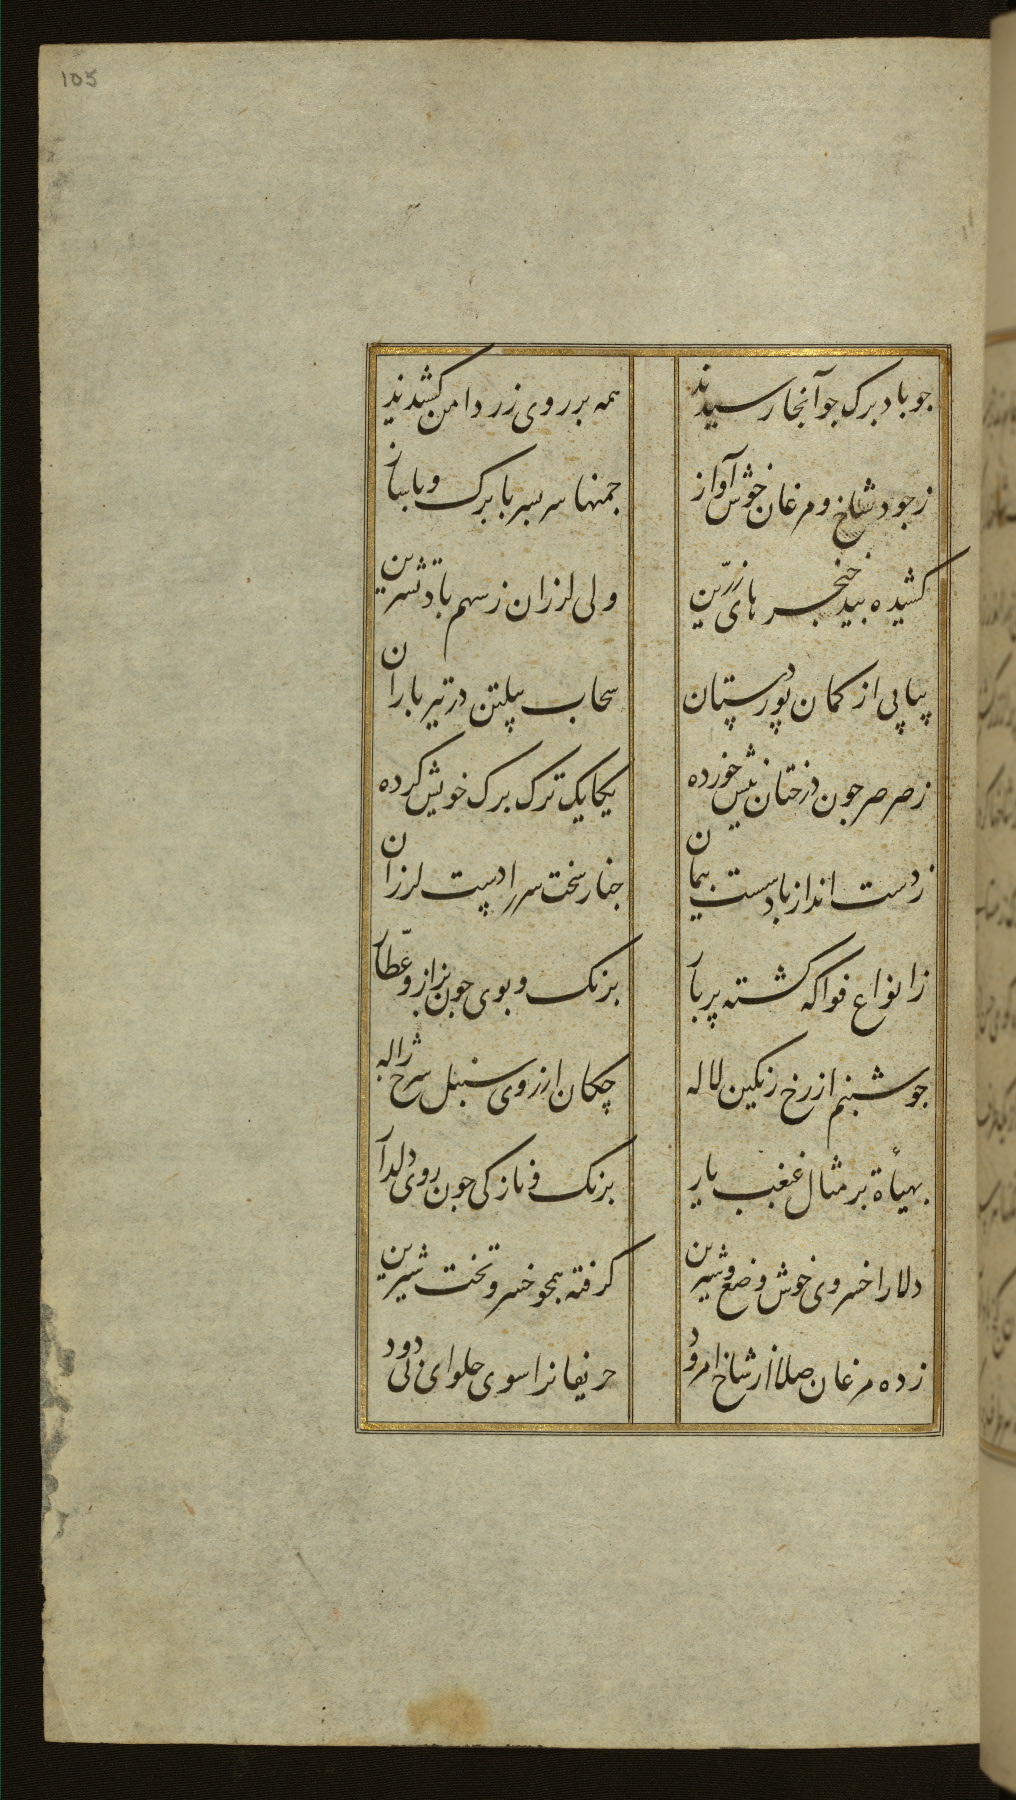 105
جو باد برک جو آنجا رسیدند همه بر روی زر دامن کشیدند
ز جود شاخ و مرغان خوش آواز جمنها سر بسر با برک و با ساز
کشیده بید خنجر های زرّین ولی لرزان ز سهم باد تشرین
پیاپی از کمان پور دستان سحاب پیلتن در تیر باران
ز صرصر جون درختان نیش خورده یکایک ترک برک خویش کرده
ز دست انداز باد سست پیمان جنار سخت سر را دست لرزان
ز انواع فواکه کشته پر بار برنک و بوی جون بزاز و عطّار
جو شبنم از رخ رنکین لاله چکان از روی سنبل سرخ ژاله
بهیأة بر مثال غبغب یار برنک و نازکی جون روی دلدار
دلارا خسروی خوش وضع و شیرین کرفته همجو خسرو تخت شیرین
زده مرغان صلا از شاخ امرود حریفانرا سوی حلوای بی دود